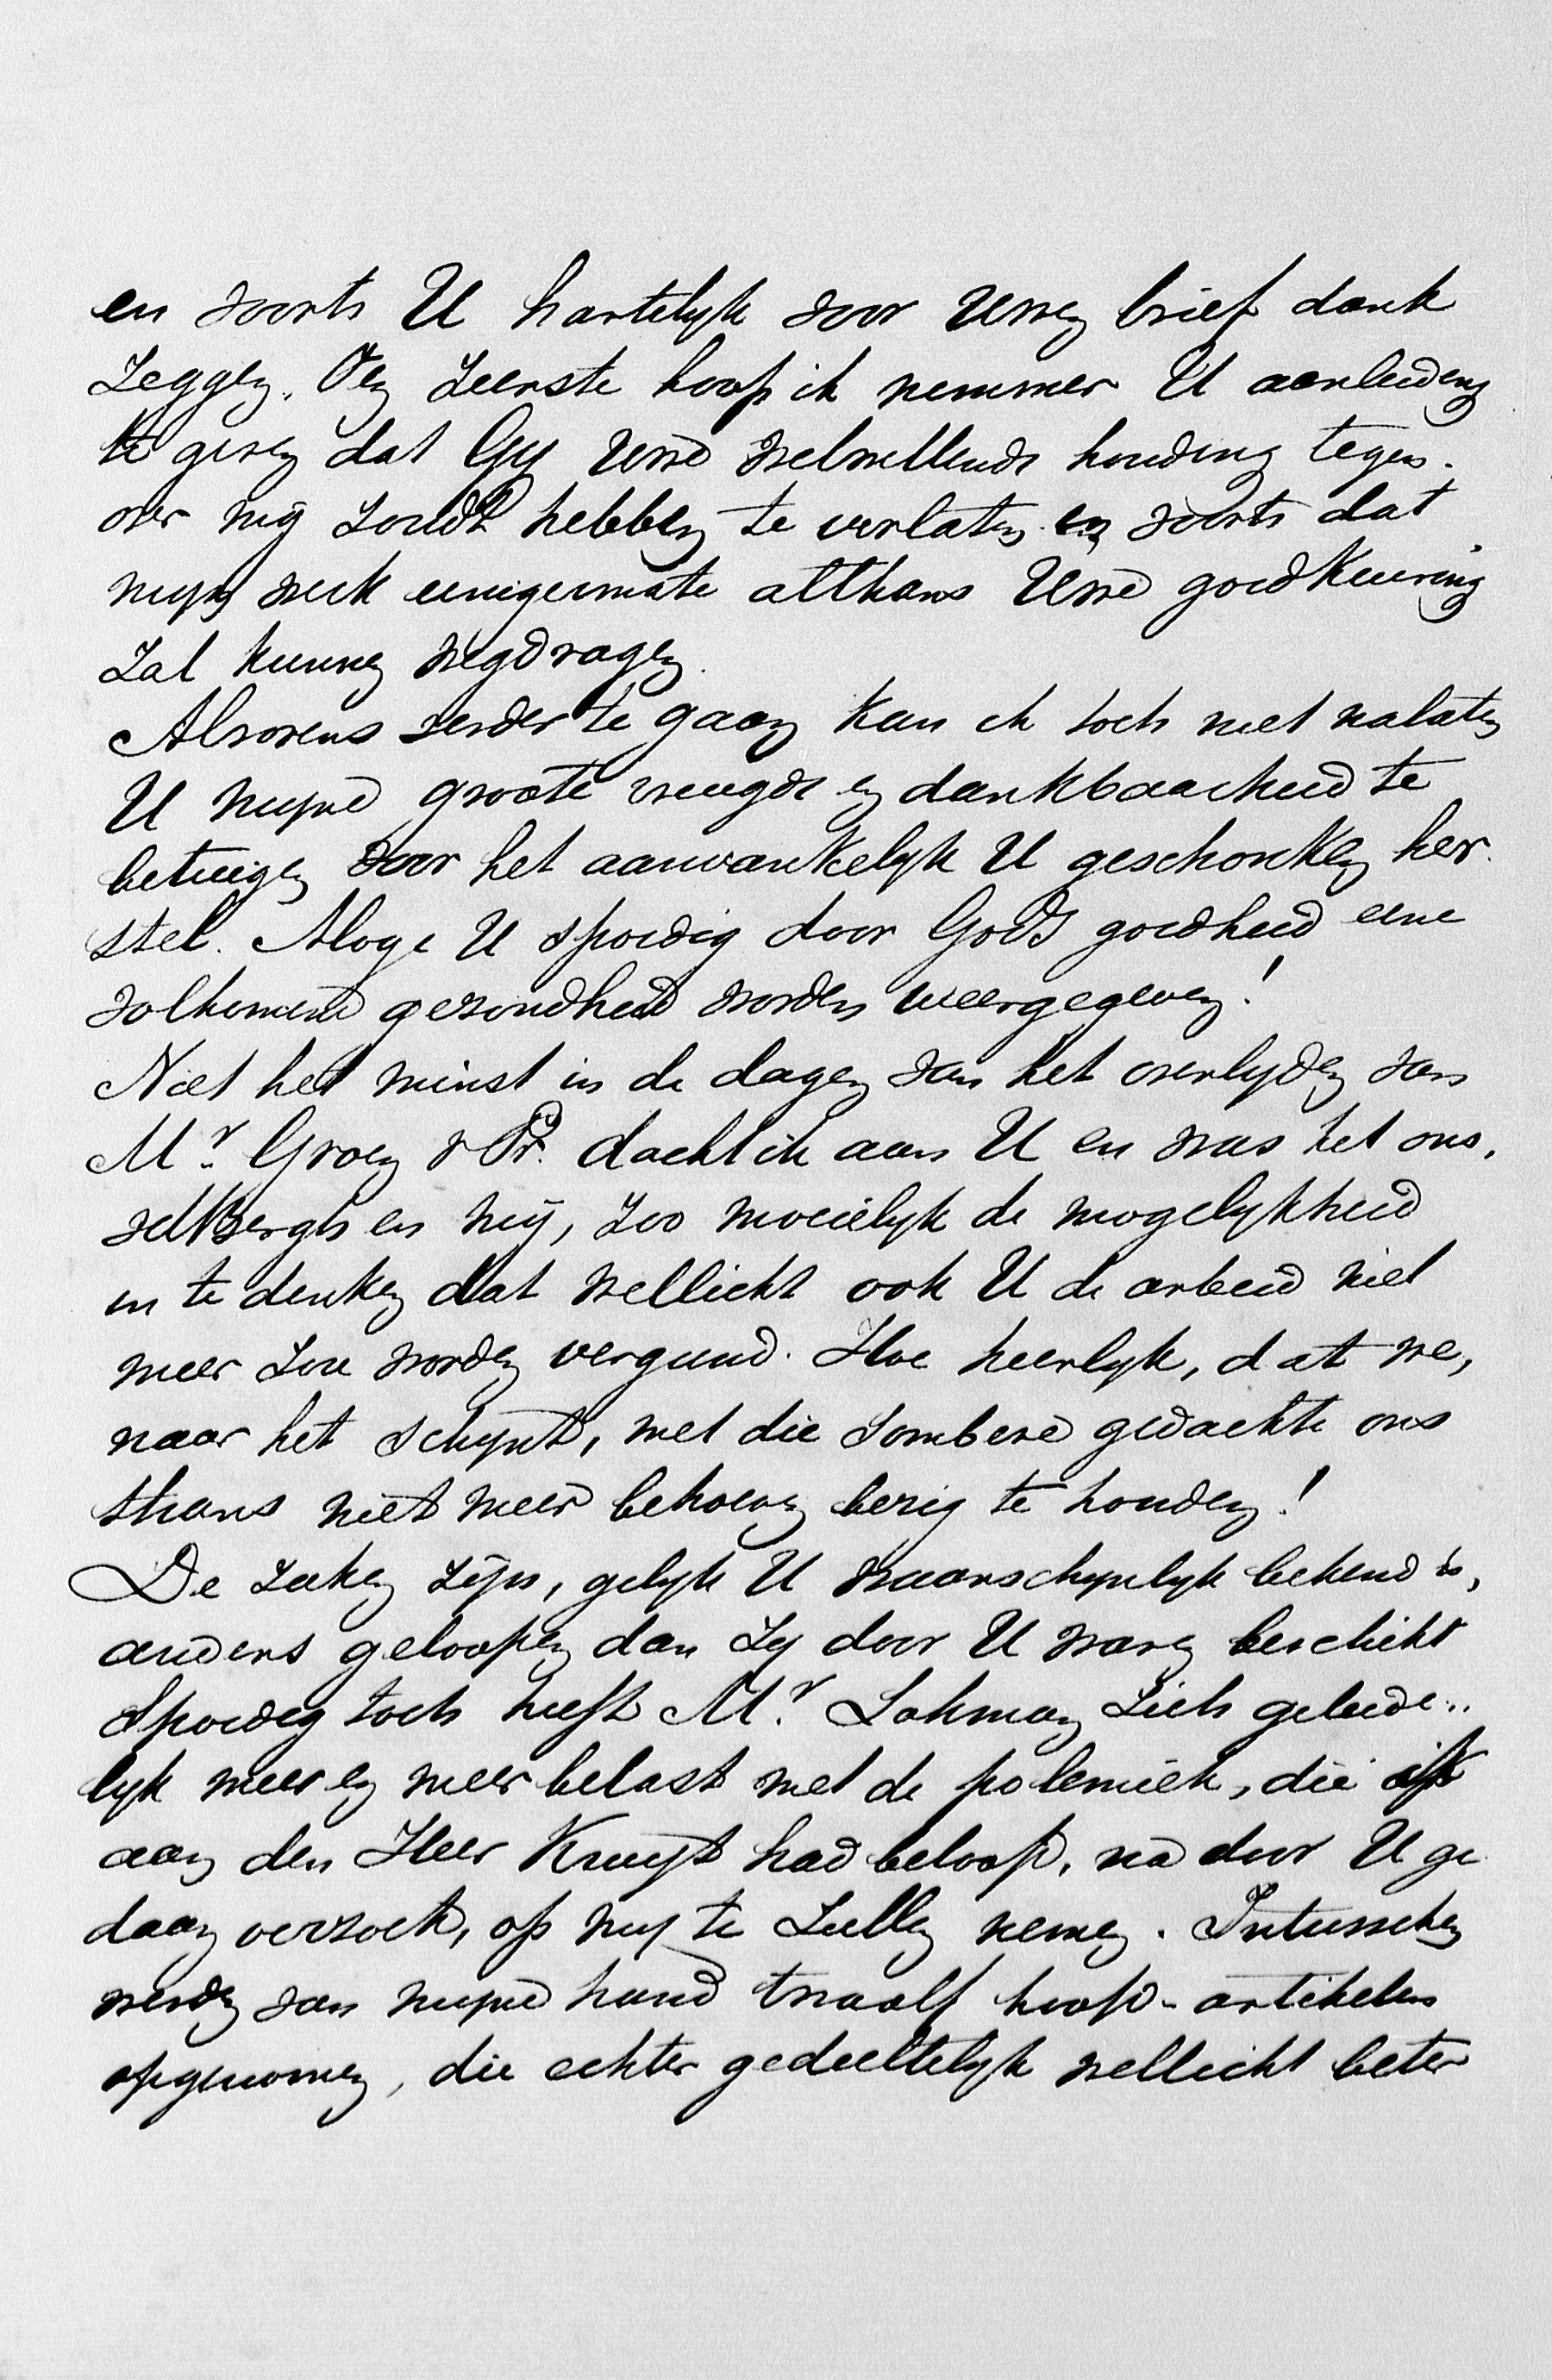 en voorts U hartelijk voor Uwen brief dank
zeggen. Ten zeerste hoop ik nimmer U aanleiding
te geven dat Gij Uwe welwillende houding tegen-
over mij zoudt hebben te verlaten en voorts dat
mijn werk eenigermate althans Uwe goedkeuring
zal kunnen wegdragen.
Alvorens verder te gaan kan ik toch niet nalaten
U mijne groote vreugde en dankbaarheid te
betuigen voor het aanvankelijk U geschonken her-
stel. Moge U spoedig door Gods goedheid eene
volkomene gezondheid worden weergegeven!
Niet het minst in de dagen van het overlijden van
Mr. Groen v Pr. dacht ik aan U en was het ons,
vdBergh en mij, zoo moeielijk de mogelijkheid
in te denken dat wellicht ook U de arbeid niet
meer zou worden vergund. Hoe heerlijk, dat we,
naar het schijnt, met die sombere gedachte ons
thans niet meer behoeven bezig te houden!
De zaken zijn, gelijk U waarschijnlijk bekend is,
anders geloopen dan zij door U waren beschikt
Spoedig toch heeft Mr. Lohman zich geleide-
lijk meer en meer belast met de polemiek, die ik
aan den Heer Kruijt had beloofd, na door U ge
daan verzoek, op mij te zullen nemen. Intusschen
werden van mijne hand twaalf hoofd-artikelen
opgenomen, die echter gedeeltelijk wellicht beter